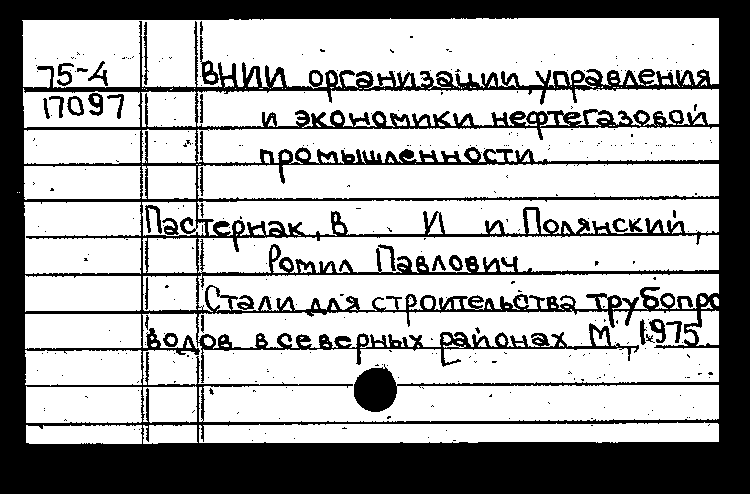 75-4 ВНИИ организации, управления
17097 и экономики нефтегазовой
промышленности.
Пастернак, В И и Полянский,
Ромил Павлович.
Стали для строительства трубопро
водов в северных районах М., 1975.